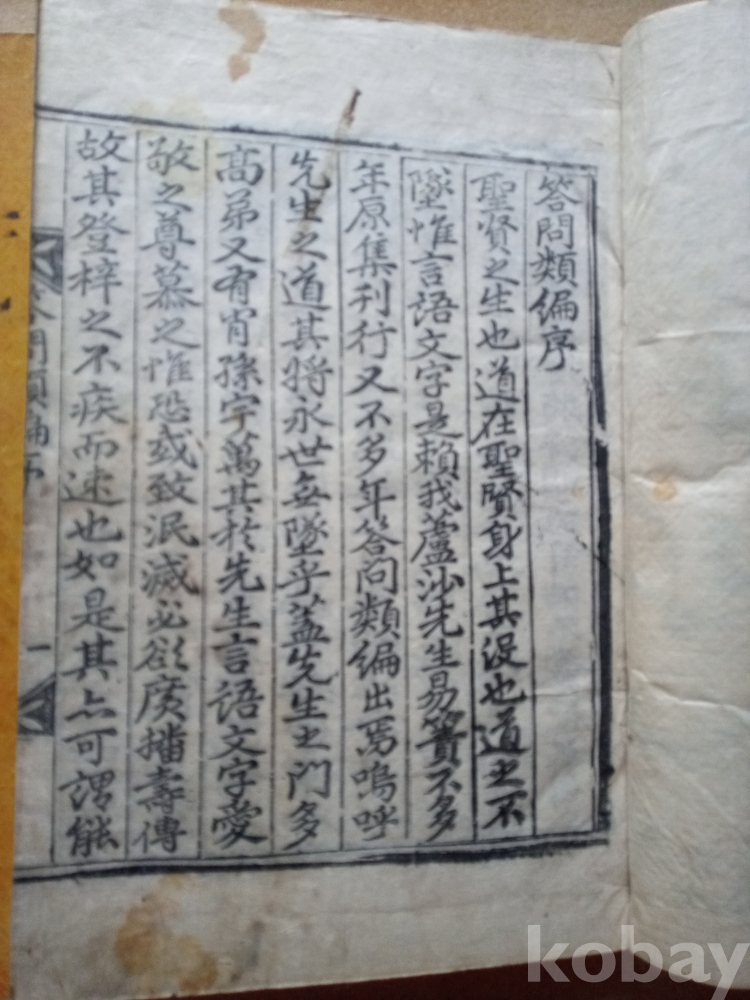 答問類編序
聖贤之生也道在聖賢身上其沒也道之不
墜惟言語文字是賴我蘆沙先生易簀不多
年原集刊行又不多年答问類編出焉嗚呼
先生之道其將永世無墜乎蓋先生之門多
高弟又有肖孫宇萬其扵先生言語文字愛
敬之尊慕之惟恐或致泯滅必欲廣播壽傳
故其登梓之不疾而速也如是其亦可謂能
答問類編序
一
kobay